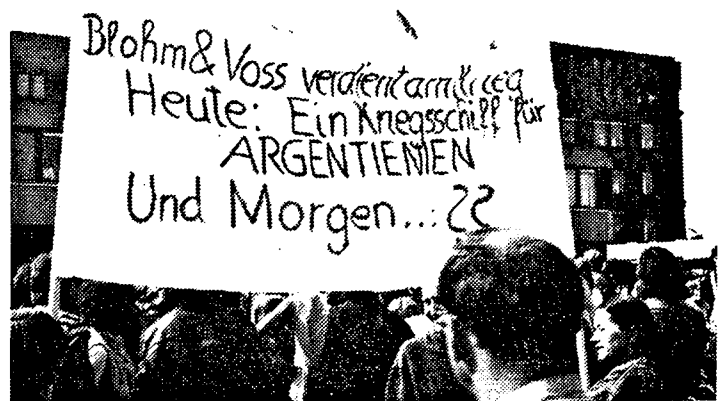 Blohm&Voss verdient am Krieg
Heute: Ein Kriegsschiff für
ARGENTIENIEN
Und Morgen..: ??